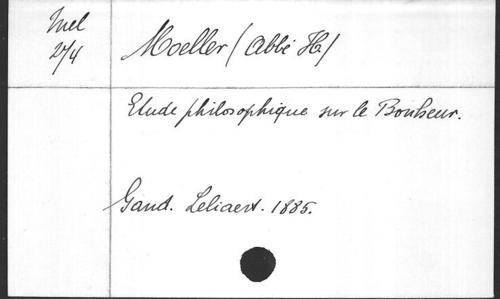 Mel
2/4
Moeller (Abbé H)
Etude philosophique sur le Bonheur.
Gand. Leliaert. 1885.